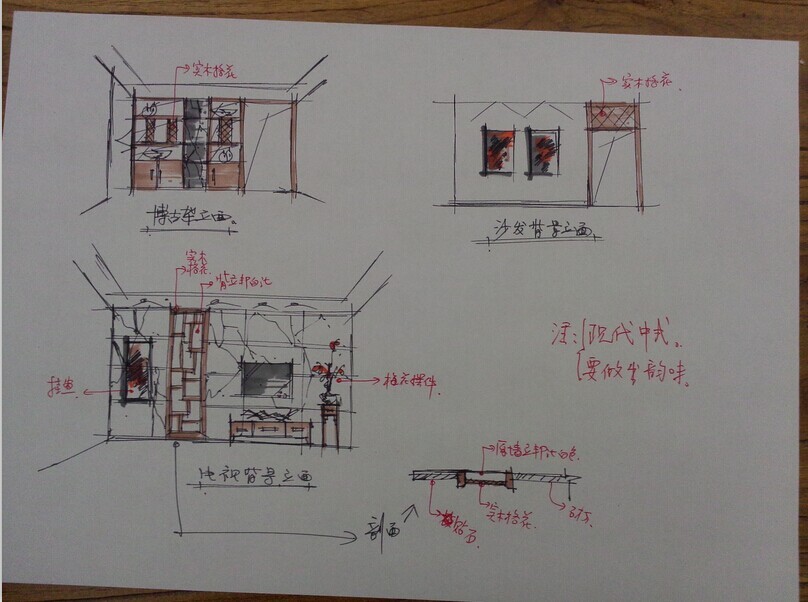 实木格花
博古架立面
实木格花
沙发背景立面
实木
格花
背立邦白漆
挂画
桂花摆件
电视背景立面
注:现代中式
要做出韵味
剖面
原墙立邦漆白色
实木格花